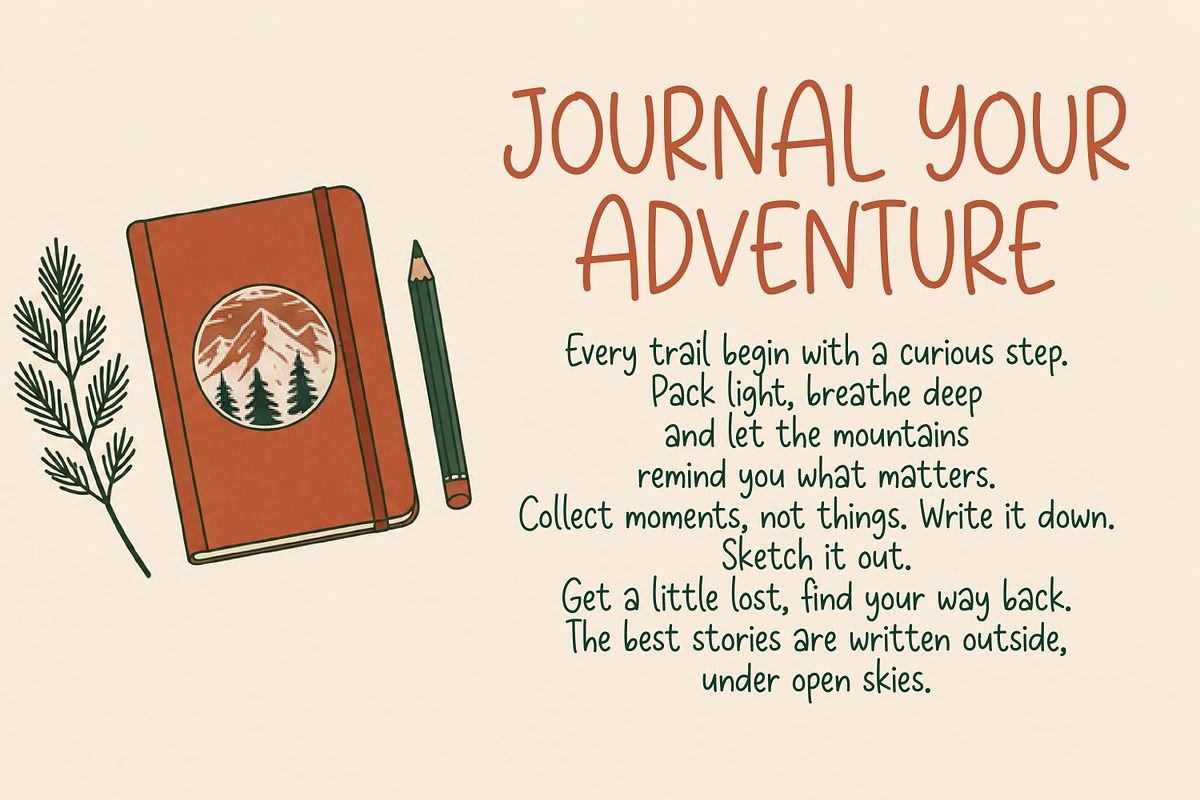 JOURNAL YOUR
ADVENTURE
Every trail begin with a curious step.
Pack light, breathe deep
and let the mountains
remind you what matters.
Collect moments, not things. Write it down.
Sketch it out.
Get a little lost, find your way back.
The best stories are written outside,
under open skies.